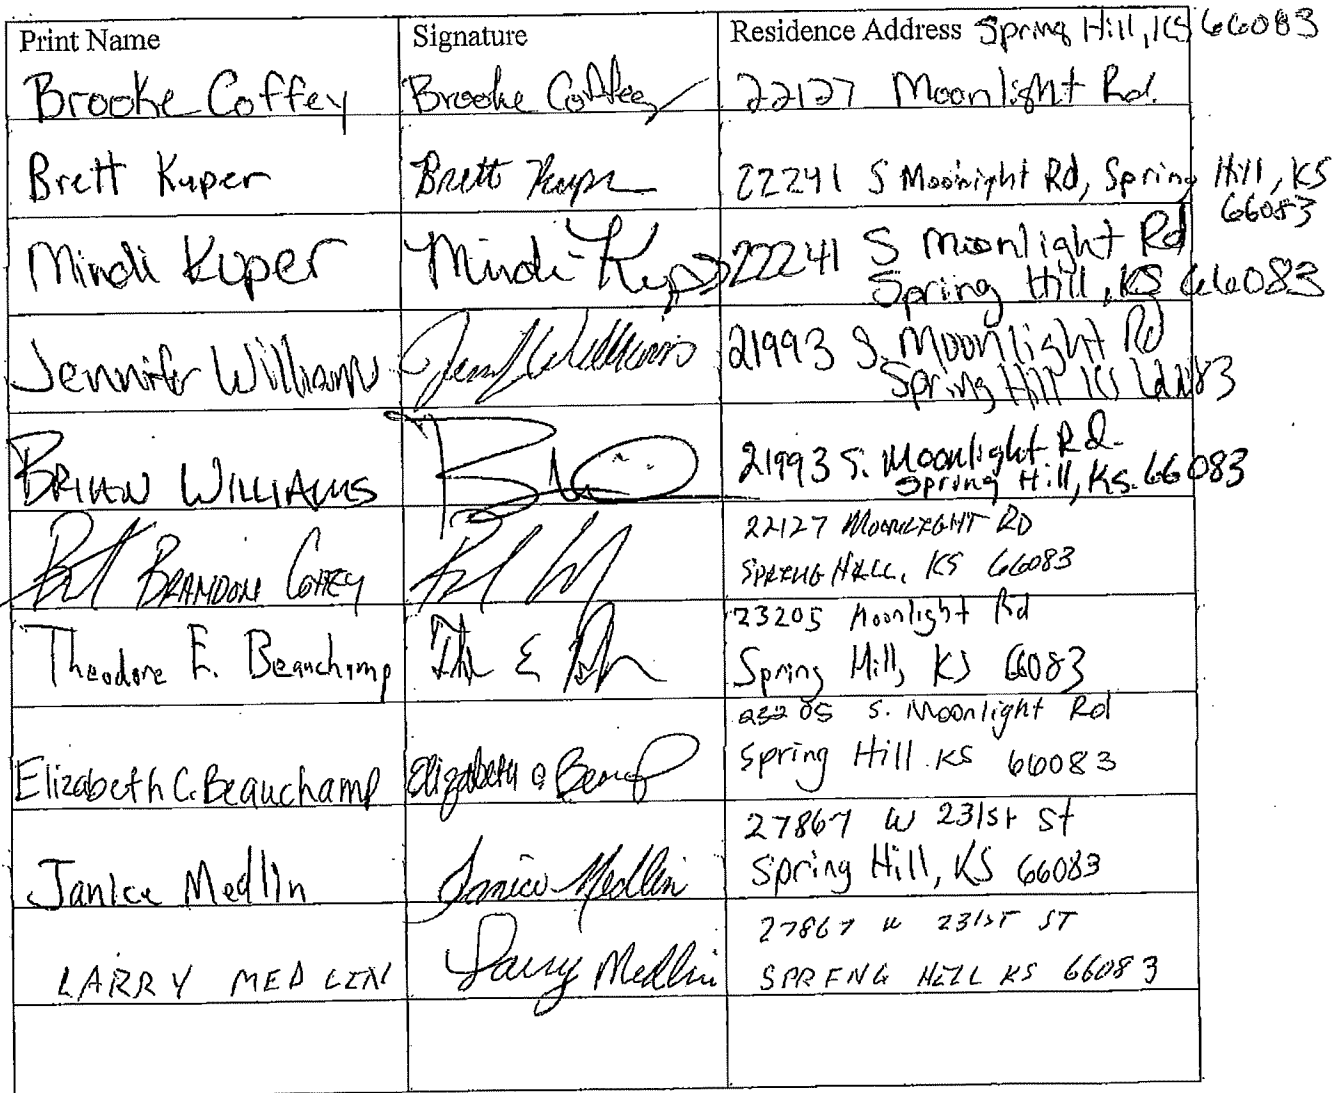 Print Name Signature Residence Address Spring Hill, KS 66083
Brooke Coffey Brooke Coffey 22127 Moonlight Rd.
Brett Kuper Brett Kuper 22241 S Moonight Rd, Spring Hill, KS
66083
Mindi Kuper Mindi Kuper 22241 S Moonlight Rd
Spring Hill, KS 66083
Jennifer Williams Williams 21993 S. Moonlight Rd
Spring Hill KS 66083
BRIAN WILLIAMS 21993 S. Moonlight Rd.
Spring Hill, KS. 66083
BRANDON COFFEY 22127 MOONLIGHT RD
SPRING HILL, KS 66083
Theodore E. Beauchamp E 23205 Moonlight Rd
Spring Hill, KS 66083
Elizabeth C. Beauchamp Elizabeth C 23205 S. Moonlight Rd
Spring Hill KS 66083
Janice Medlin Janice Medlin 27867 W 231st St
Spring Hill, KS 66083
LARRY MEDLIN Larry Medlin 27867 W 231ST ST
SPRING HILL KS 66083